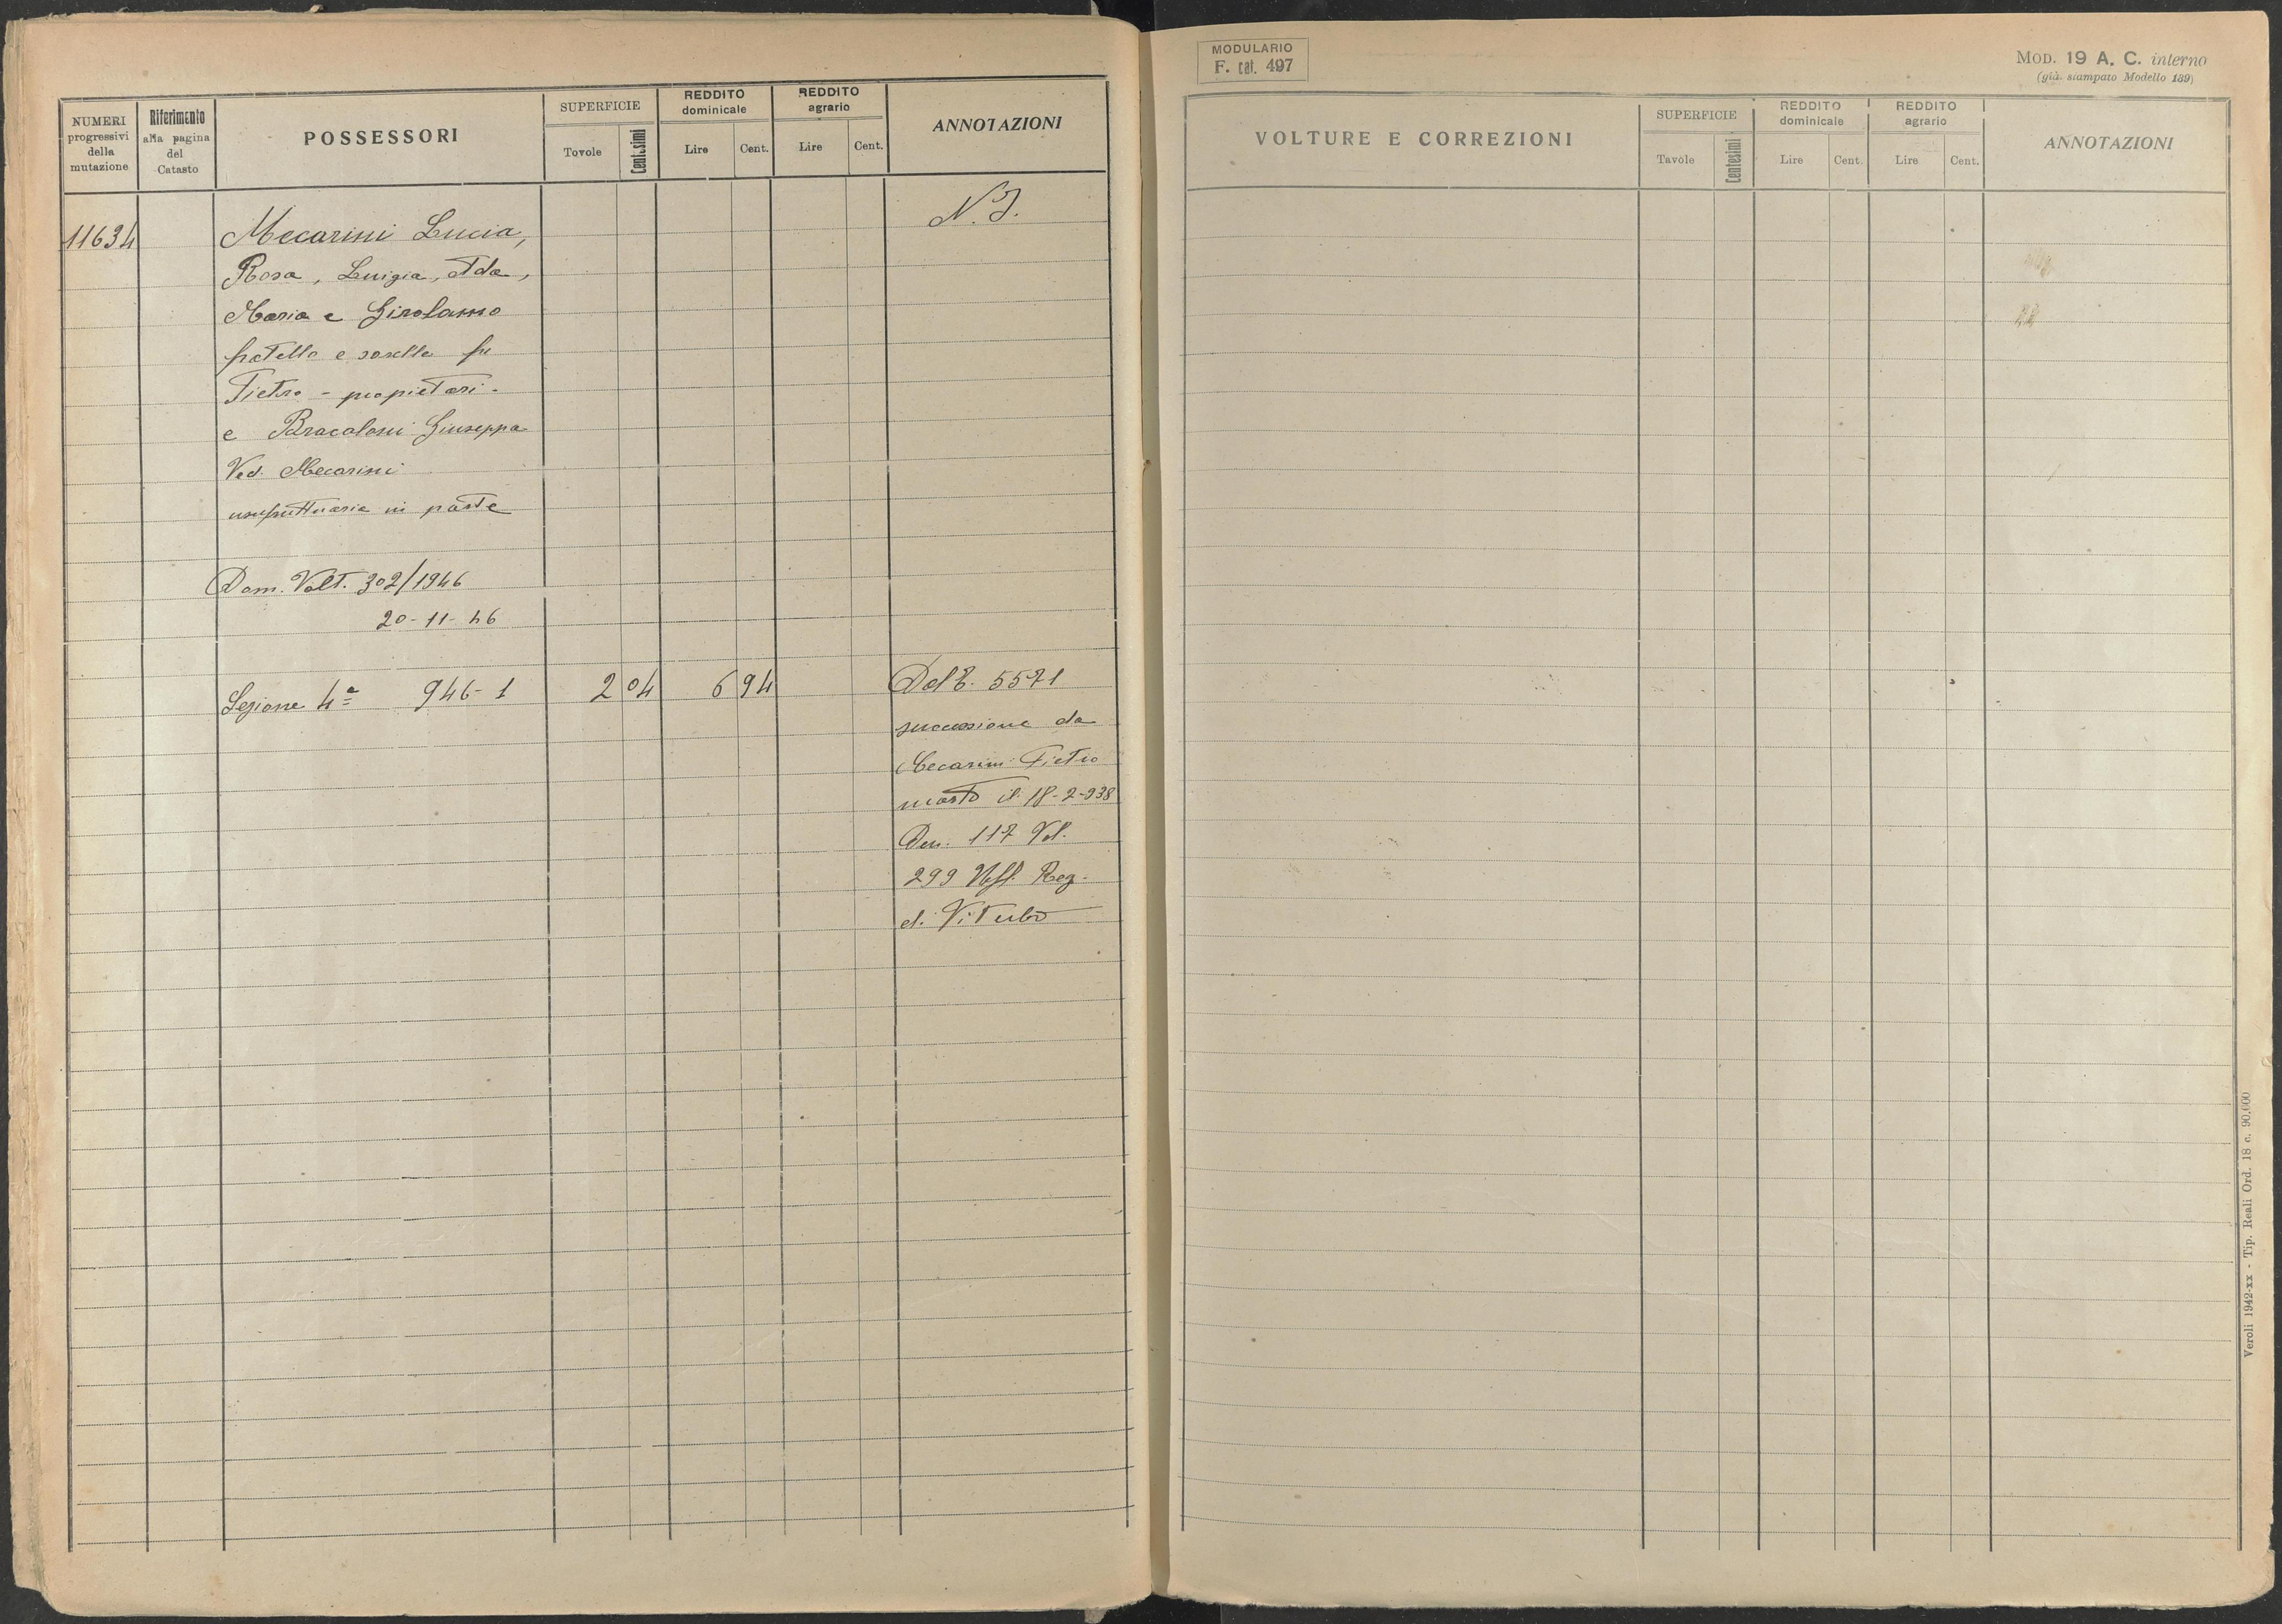 NUMERI progressivi della mutazione
Riferimento alla pagina del Catasto
POSSESSORI
SUPERFICIE
Tovole
Centesimi
REDDITO dominicale
Lire
Cent.
REDDITO agrario
Lire
Cent.
ANNOTAZIONI
N. I.
11634
Mecarini Lucia,
Rosa, Luigia, Ada,
Maria e Girolamo
fratello e sorelle fu
Pietro - propietari -
e Bracaloni Giuseppa
Ved. Mecarini
usufruttuaria in parte
Dom. Volt. 302/1946
20-11-46
Sezione 4ª 946-1 2 04 6 94
Dal P. 5571
successione da
Mecarini Pietro
morto il 18-2-938
Den. 117 Vol.
299 Uff. Reg.
di Viterbo
MODULARIO
F. cat. 497
MOD. 19 A. C. interno
(già stampato Modello 189)
VOLTURE E CORREZIONI
SUPERFICIE
Tavole
Centesimi
REDDITO dominicale
Lire
Cent.
REDDITO agrario
Lire
Cent.
ANNOTAZIONI
Veroli 1942-XX - Tip. Reali Ord. 18 c. 90.000